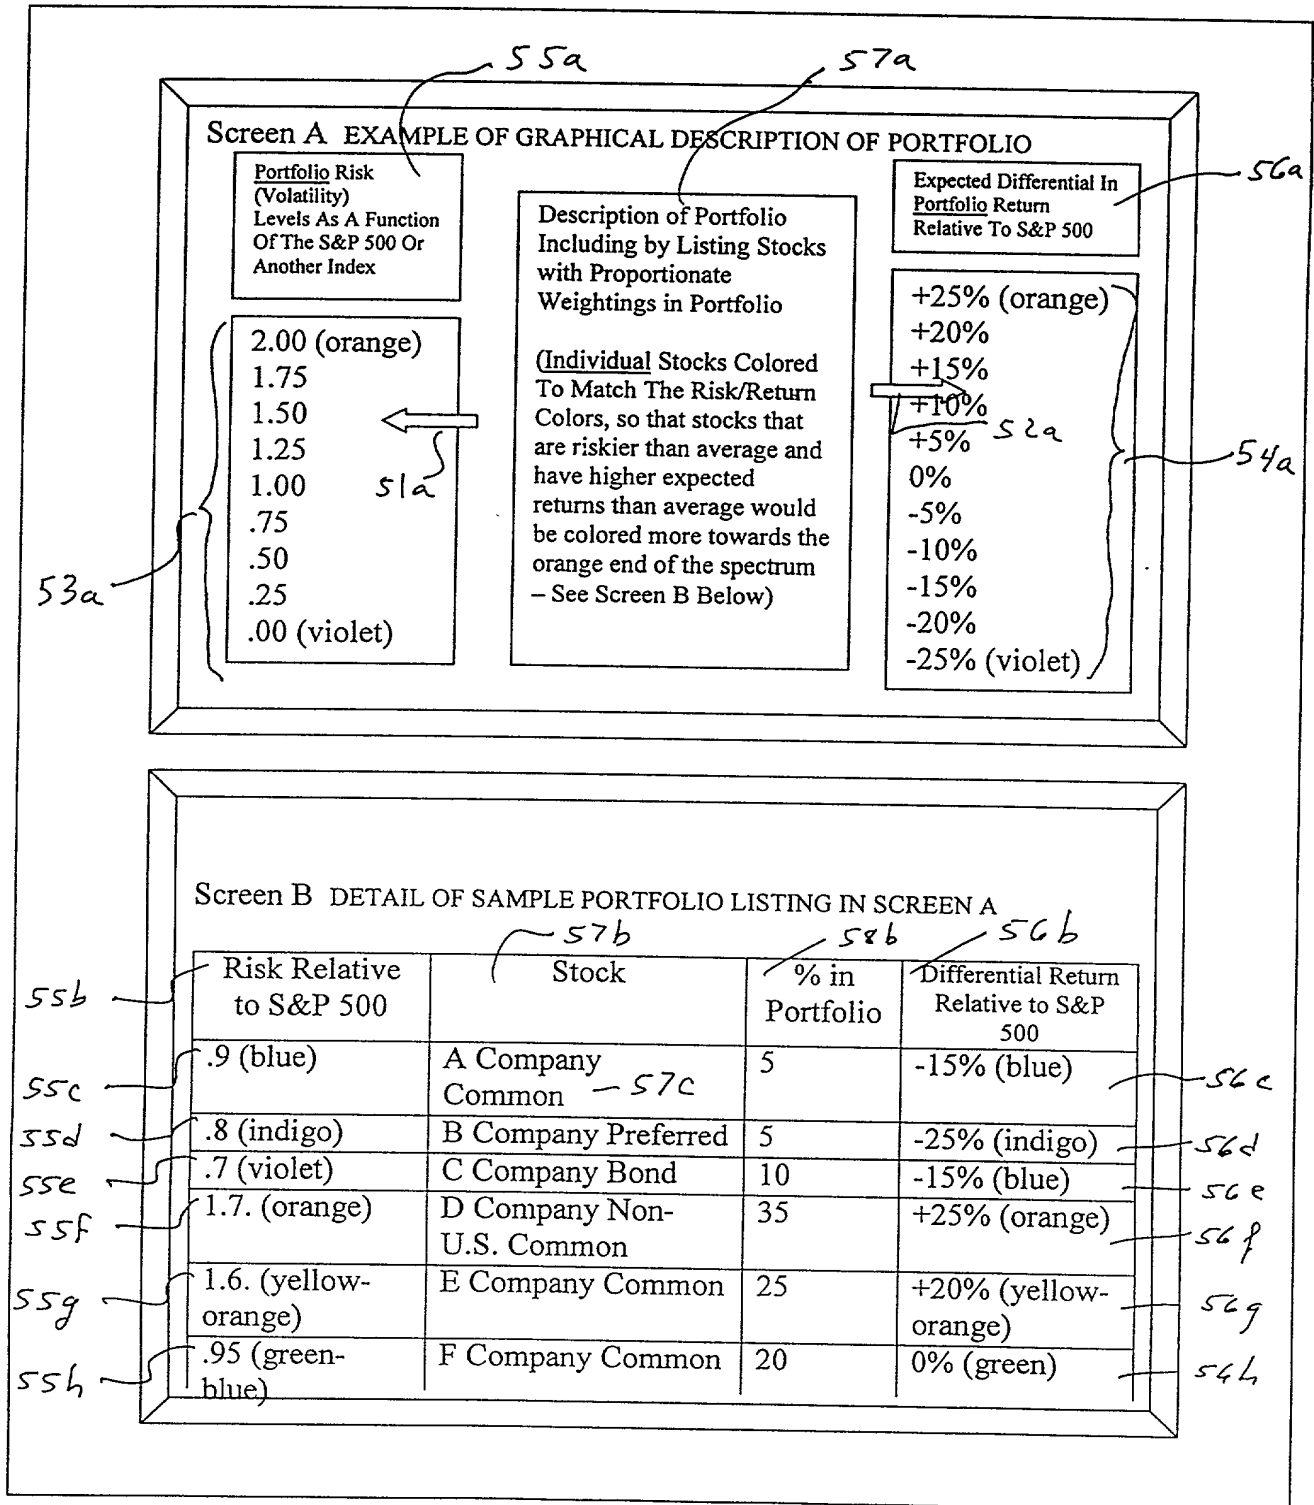 55a
57a
Screen A EXAMPLE OF GRAPHICAL DESCRIPTION OF PORTFOLIO
Portfolio Risk
(Volatility)
Levels As A Function
Of The S&P 500 Or
Another Index
2.00 (orange)
1.75
1.50
1.25
1.00
.75
.50
.25
.00 (violet)
53a
51a
Description of Portfolio
Including by Listing Stocks
with Proportionate
Weightings in Portfolio
(Individual Stocks Colored
To Match The Risk/Return
Colors, so that stocks that
are riskier than average and
have higher expected
returns than average would
be colored more towards the
orange end of the spectrum
– See Screen B Below)
Expected Differential In
Portfolio Return
Relative To S&P 500
56a
+25% (orange)
+20%
+15%
+10%
+5%
0%
-5%
-10%
-15%
-20%
-25% (violet)
52a
54a
Screen B DETAIL OF SAMPLE PORTFOLIO LISTING IN SCREEN A
57b
58b
56b
55b
Risk Relative
to S&P 500
Stock
% in
Portfolio
Differential Return
Relative to S&P
500
55c
.9 (blue)
A Company
Common
57c
5
-15% (blue)
56c
55d
.8 (indigo)
B Company Preferred
5
-25% (indigo)
56d
55e
.7 (violet)
C Company Bond
10
-15% (blue)
56e
55f
1.7. (orange)
D Company Non-
U.S. Common
35
+25% (orange)
56f
55g
1.6. (yellow-
orange)
E Company Common
25
+20% (yellow-
orange)
56g
55h
.95 (green-
blue)
F Company Common
20
0% (green)
56h